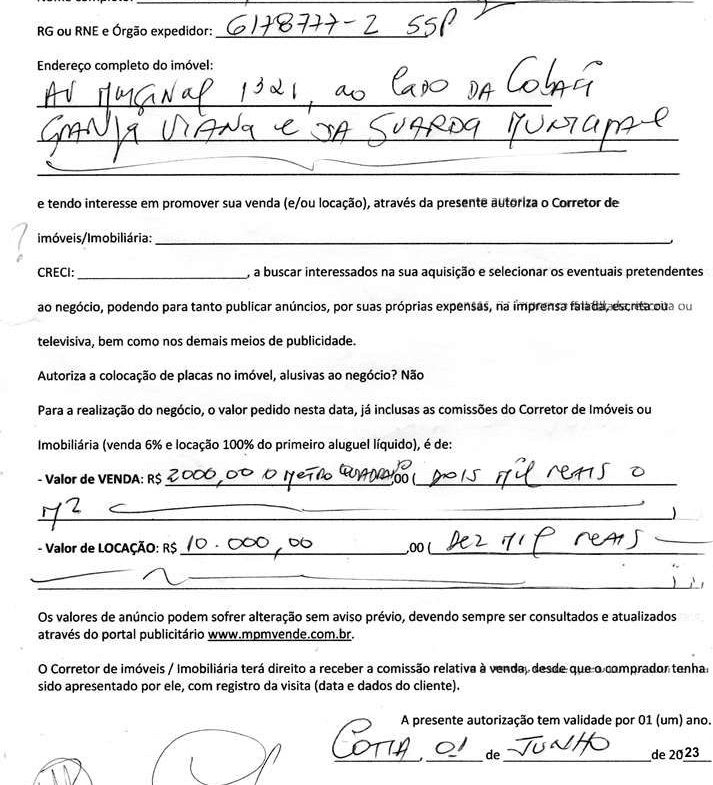 RG ou RNE e Órgão expedidor: 6178777-2 SSP
Endereço completo do imóvel:
AV Marginal 1321, ao lado DA Cobasi
GRANJA VIANA e DA GUARDA MUNICIPAL
e tendo interesse em promover sua venda (e/ou locação), através da presente autoriza o Corretor de
imóveis/Imobiliária: ,
?
CRECI: , a buscar interessados na sua aquisição e selecionar os eventuais pretendentes
ao negócio, podendo para tanto publicar anúncios, por suas próprias expensas, na imprensa falada, escrita ou
televisiva, bem como nos demais meios de publicidade.
Autoriza a colocação de placas no imóvel, alusivas ao negócio? Não
Para a realização do negócio, o valor pedido nesta data, já inclusas as comissões do Corretor de Imóveis ou
Imobiliária (venda 6% e locação 100% do primeiro aluguel líquido), é de:
- Valor de VENDA: R$ 2000,00 O METRO QUADRADO ,00 ( DOIS MIL REAIS O
M2 )
- Valor de LOCAÇÃO: R$ 10.000,00 ,00 ( DEZ MIL REAIS
)
Os valores de anúncio podem sofrer alteração sem aviso prévio, devendo sempre ser consultados e atualizados
através do portal publicitário www.mpmvende.com.br.
O Corretor de imóveis / Imobiliária terá direito a receber a comissão relativa à venda, desde que o comprador tenha
sido apresentado por ele, com registro da visita (data e dados do cliente).
A presente autorização tem validade por 01 (um) ano.
COTIA, 01 de JUNHO de 2023